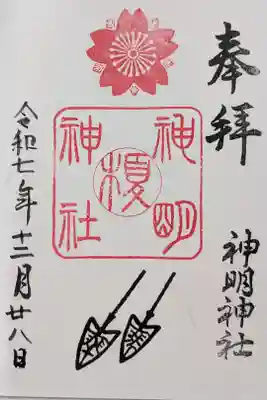 奉拝
神明神社
神明
神社
令和七年十二月廿八日